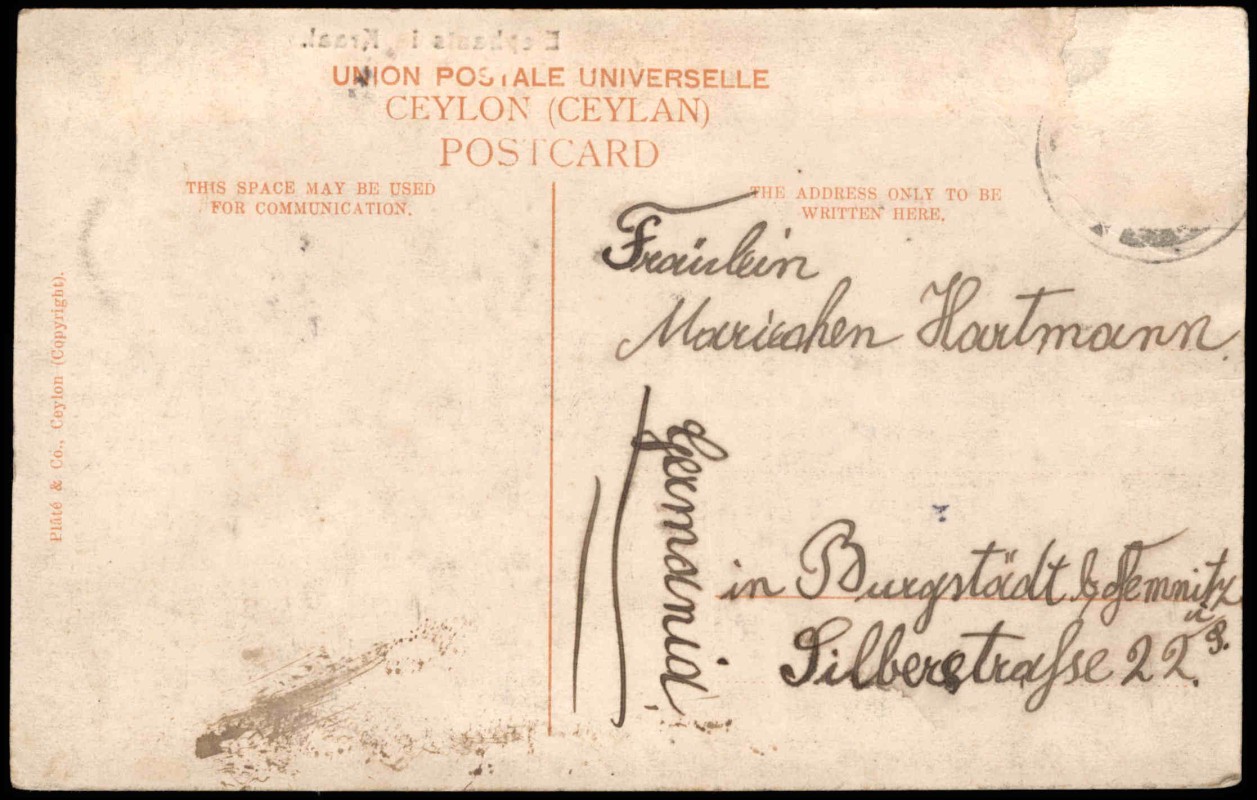 Elephants in Kraal.
UNION POSTALE UNIVERSELLE
CEYLON (CEYLAN)
POSTCARD
THIS SPACE MAY BE USED
FOR COMMUNICATION.
THE ADDRESS ONLY TO BE
WRITTEN HERE.
Plâté & Co., Ceylon (Copyright).
Fräulein
Mariechen Hartmann.
Germania
in Burgstädt b/Chemnitz
i/S.
Silberstrasse 22.